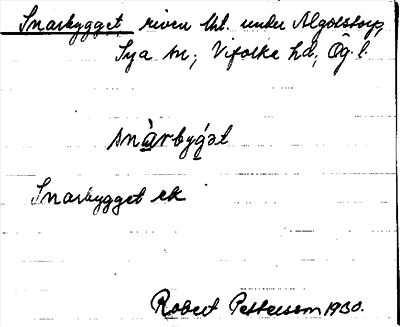 Snarbygget, riven bl. under Algotstorp,
Sya sn; Vifolka hd; Ög. l.
snàrbyǵət
Snarbygget ek
Robert Pettersson 1930.